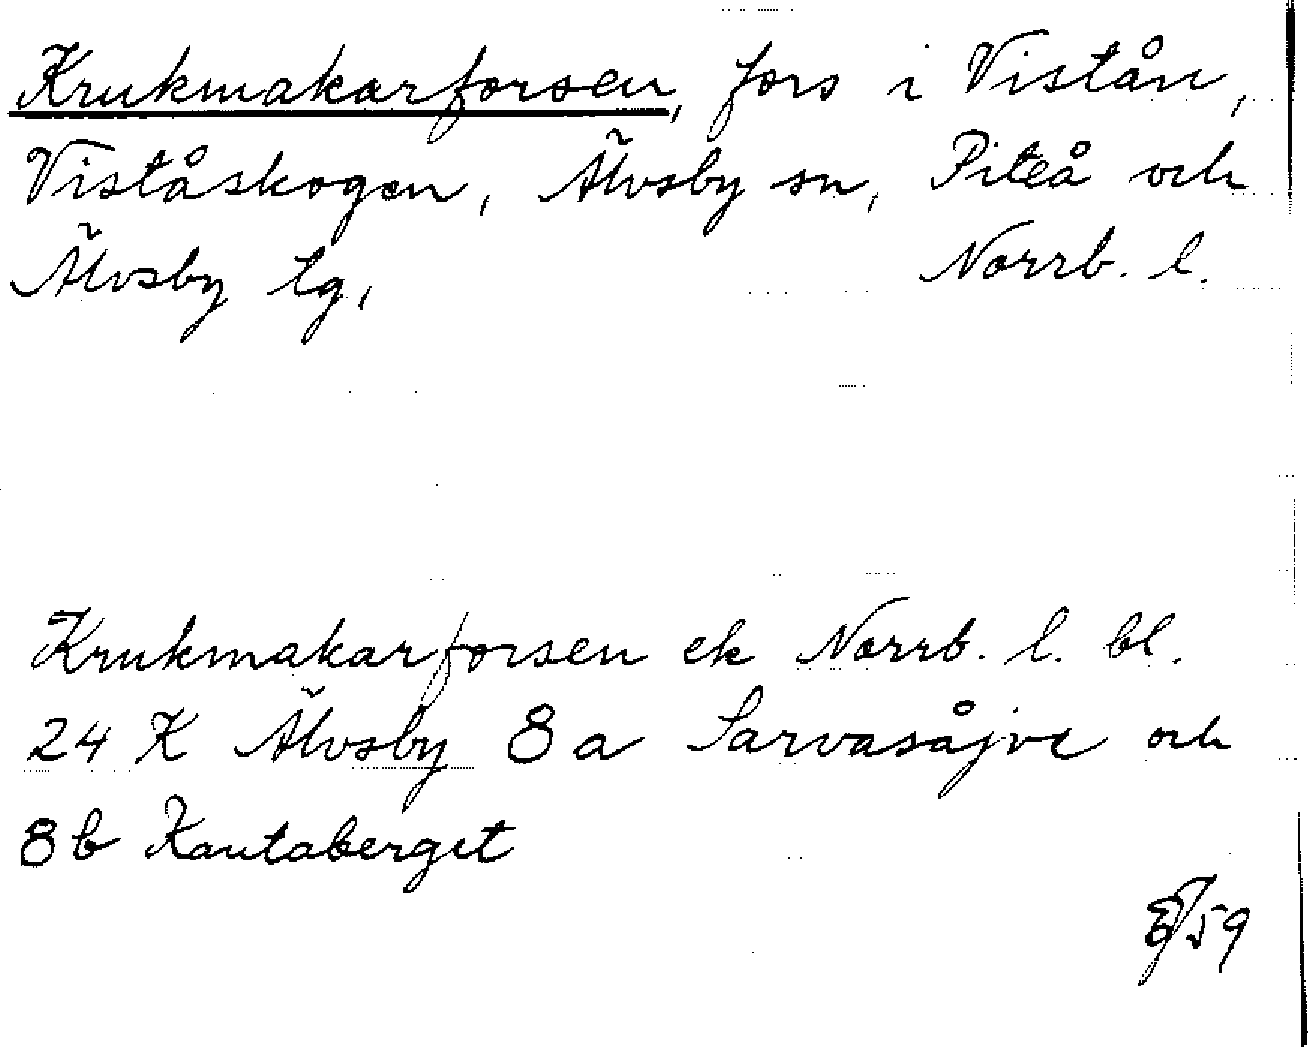 Krukmakarforsen, fors i Viståån,
Viståskogen, Älvsby sn, Piteå och
Älvsby tg, Norrb. l.
Krukmakarforsen ek Norrb. l. bl.
24 K Älvsby 8a Sarvasåjve och
8b Kautaberget
59